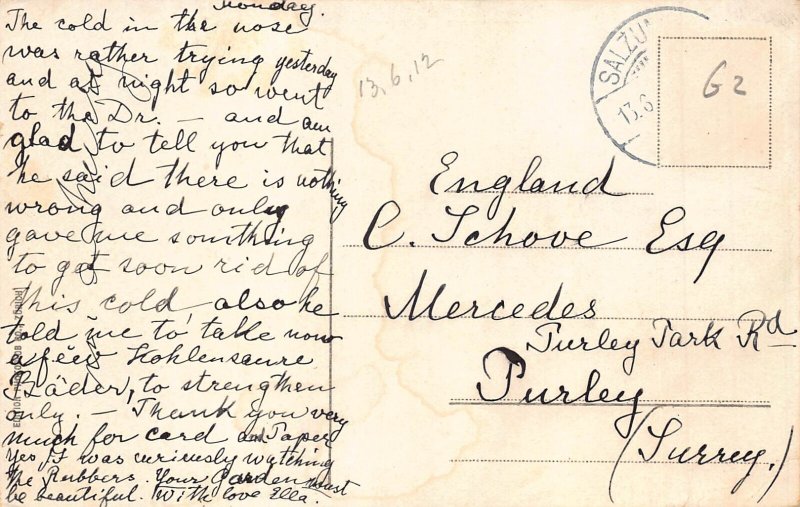 Monday.
The cold in the nose
was rather trying yesterday
and at night so went
to the Dr. — and am
glad to tell you that
he said there is nothing
wrong and only
gave me somthing
to get soon rid of
this cold also he
told me to take now
a few Kohlensaure
Bäder, to strengthen
only. — Thank you very
much for card and Paper
yes I was curiously watching
the Rubbers. Your Garden must
be beautiful. With love Ella.
13.6.12
SALZU
13.6
G2
England
C. Schove Esq
Mercedes
Purley Park Rd
Purley
(Surrey.)